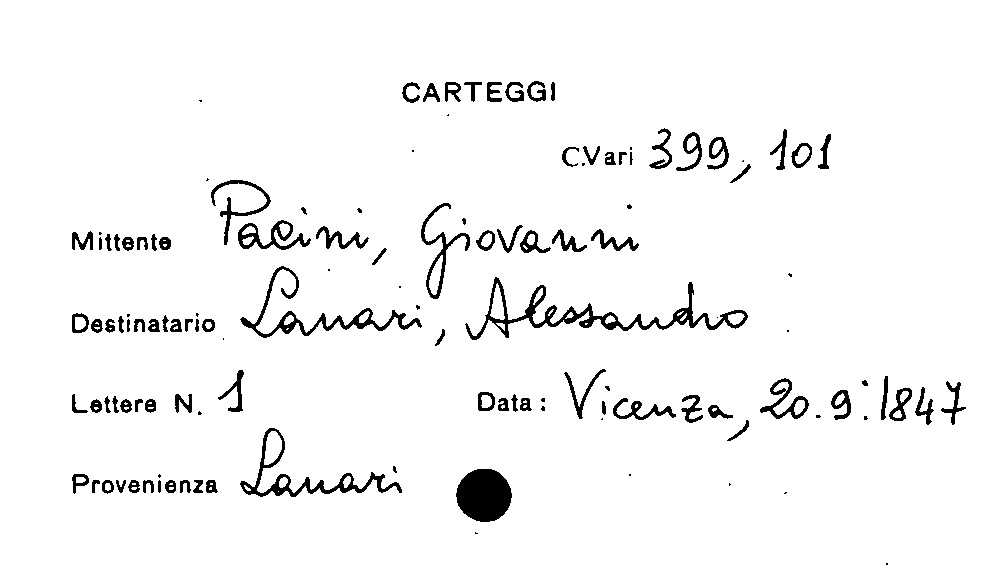 CARTEGGI
C.Vari 399, 101
Mittente Pacini, Giovanni
Destinatario Lanari, Alessandro
Lettere N. 1 Data: Vicenza, 20.9.1847
Provenienza Lanari